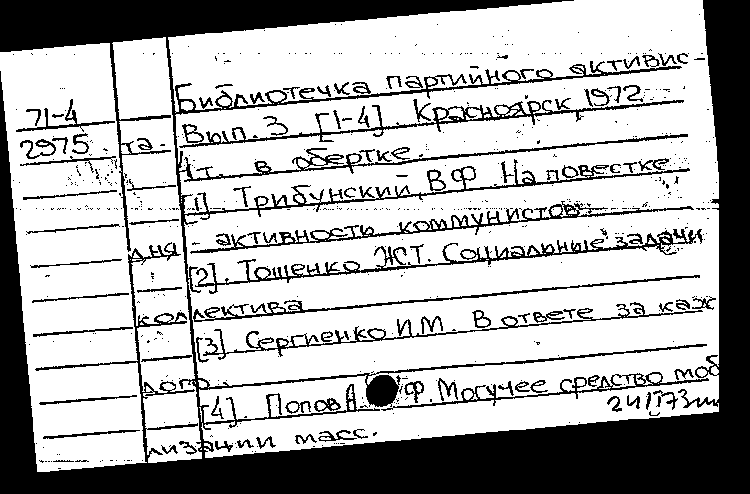 Библиотечка партийного активис-
71-4
2975. та. Вып. 3. [1-4]. Красноярск, 1972.
4 т. в обертке.
[1]. Трибунский, В.Ф. На повестке
дня - активность коммунистов.
[2]. Тощенко Ж.Т. Социальные задачи
коллектива
[3]. Сергиенко И.М. В ответе за каж
дого.
[4]. Попов А Ф. Могучее средство моб
лизации масс.